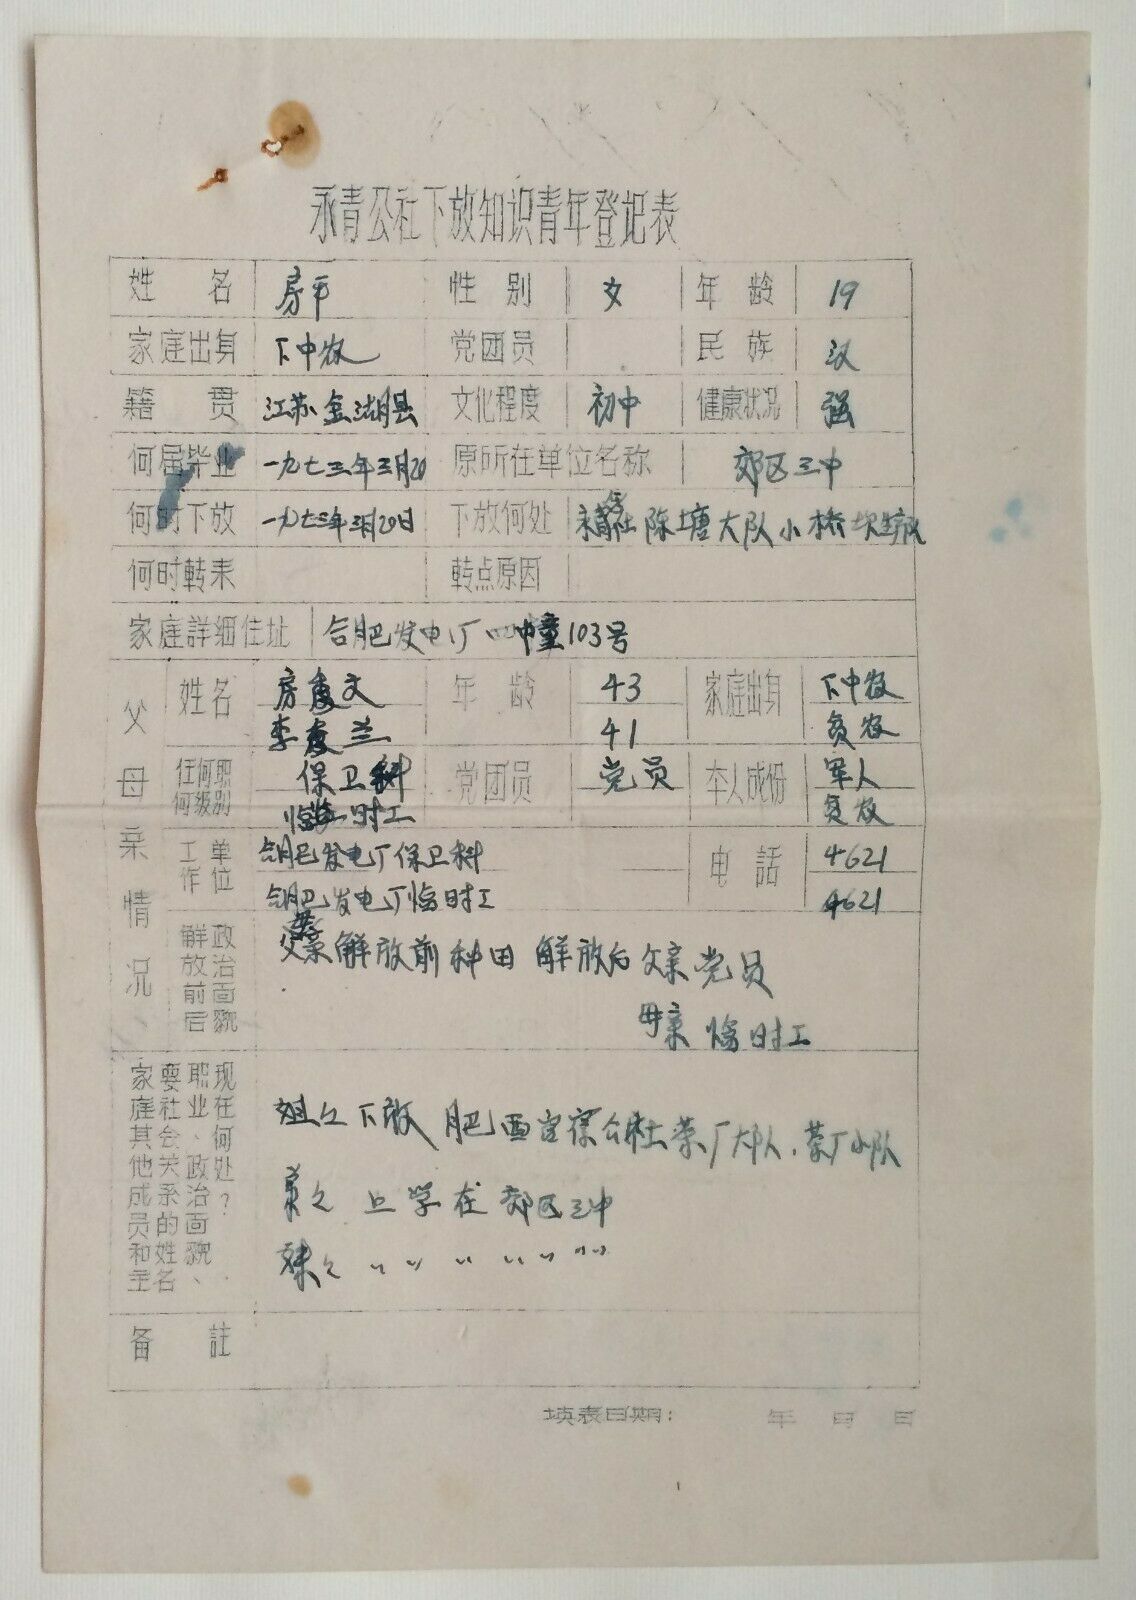 永青公社下放知识青年登记表
姓名 房平 性别 女 年龄 19
家庭出身 下中农 党团员 民族 汉
籍贯 江苏金湖县 文化程度 初中 健康状况 强
何届毕业 一九七三年三月20 原所在单位名称 郊区三中
何时下放 一九七三年3月20日 下放何处 永青公社陈塘大队小桥
何时转来 转点原因
家庭詳细住址 合肥发电厂 103号
父母亲情况
姓名 房 文 年龄 43 家庭出身 下中农
李 兰 41 贫农
任何职何级别 保卫科 党团员 党员 本人成份 军人
临时工 贫农
工作单位 合肥发电厂保卫科 电話 4621
合肥发电厂临时工 4621
解放前后政治面貌 父亲解放前种田 解放后父亲党员
母亲 临时工
家庭其他成员和主要社会关系的姓名、职业、政治面貌、现在何处?
姐々下放 肥西 公社 厂大队、 厂小队
上学在 郊区三中
妹々 〃 〃 〃 〃 〃 〃
备註
填表日期: 年 月 日